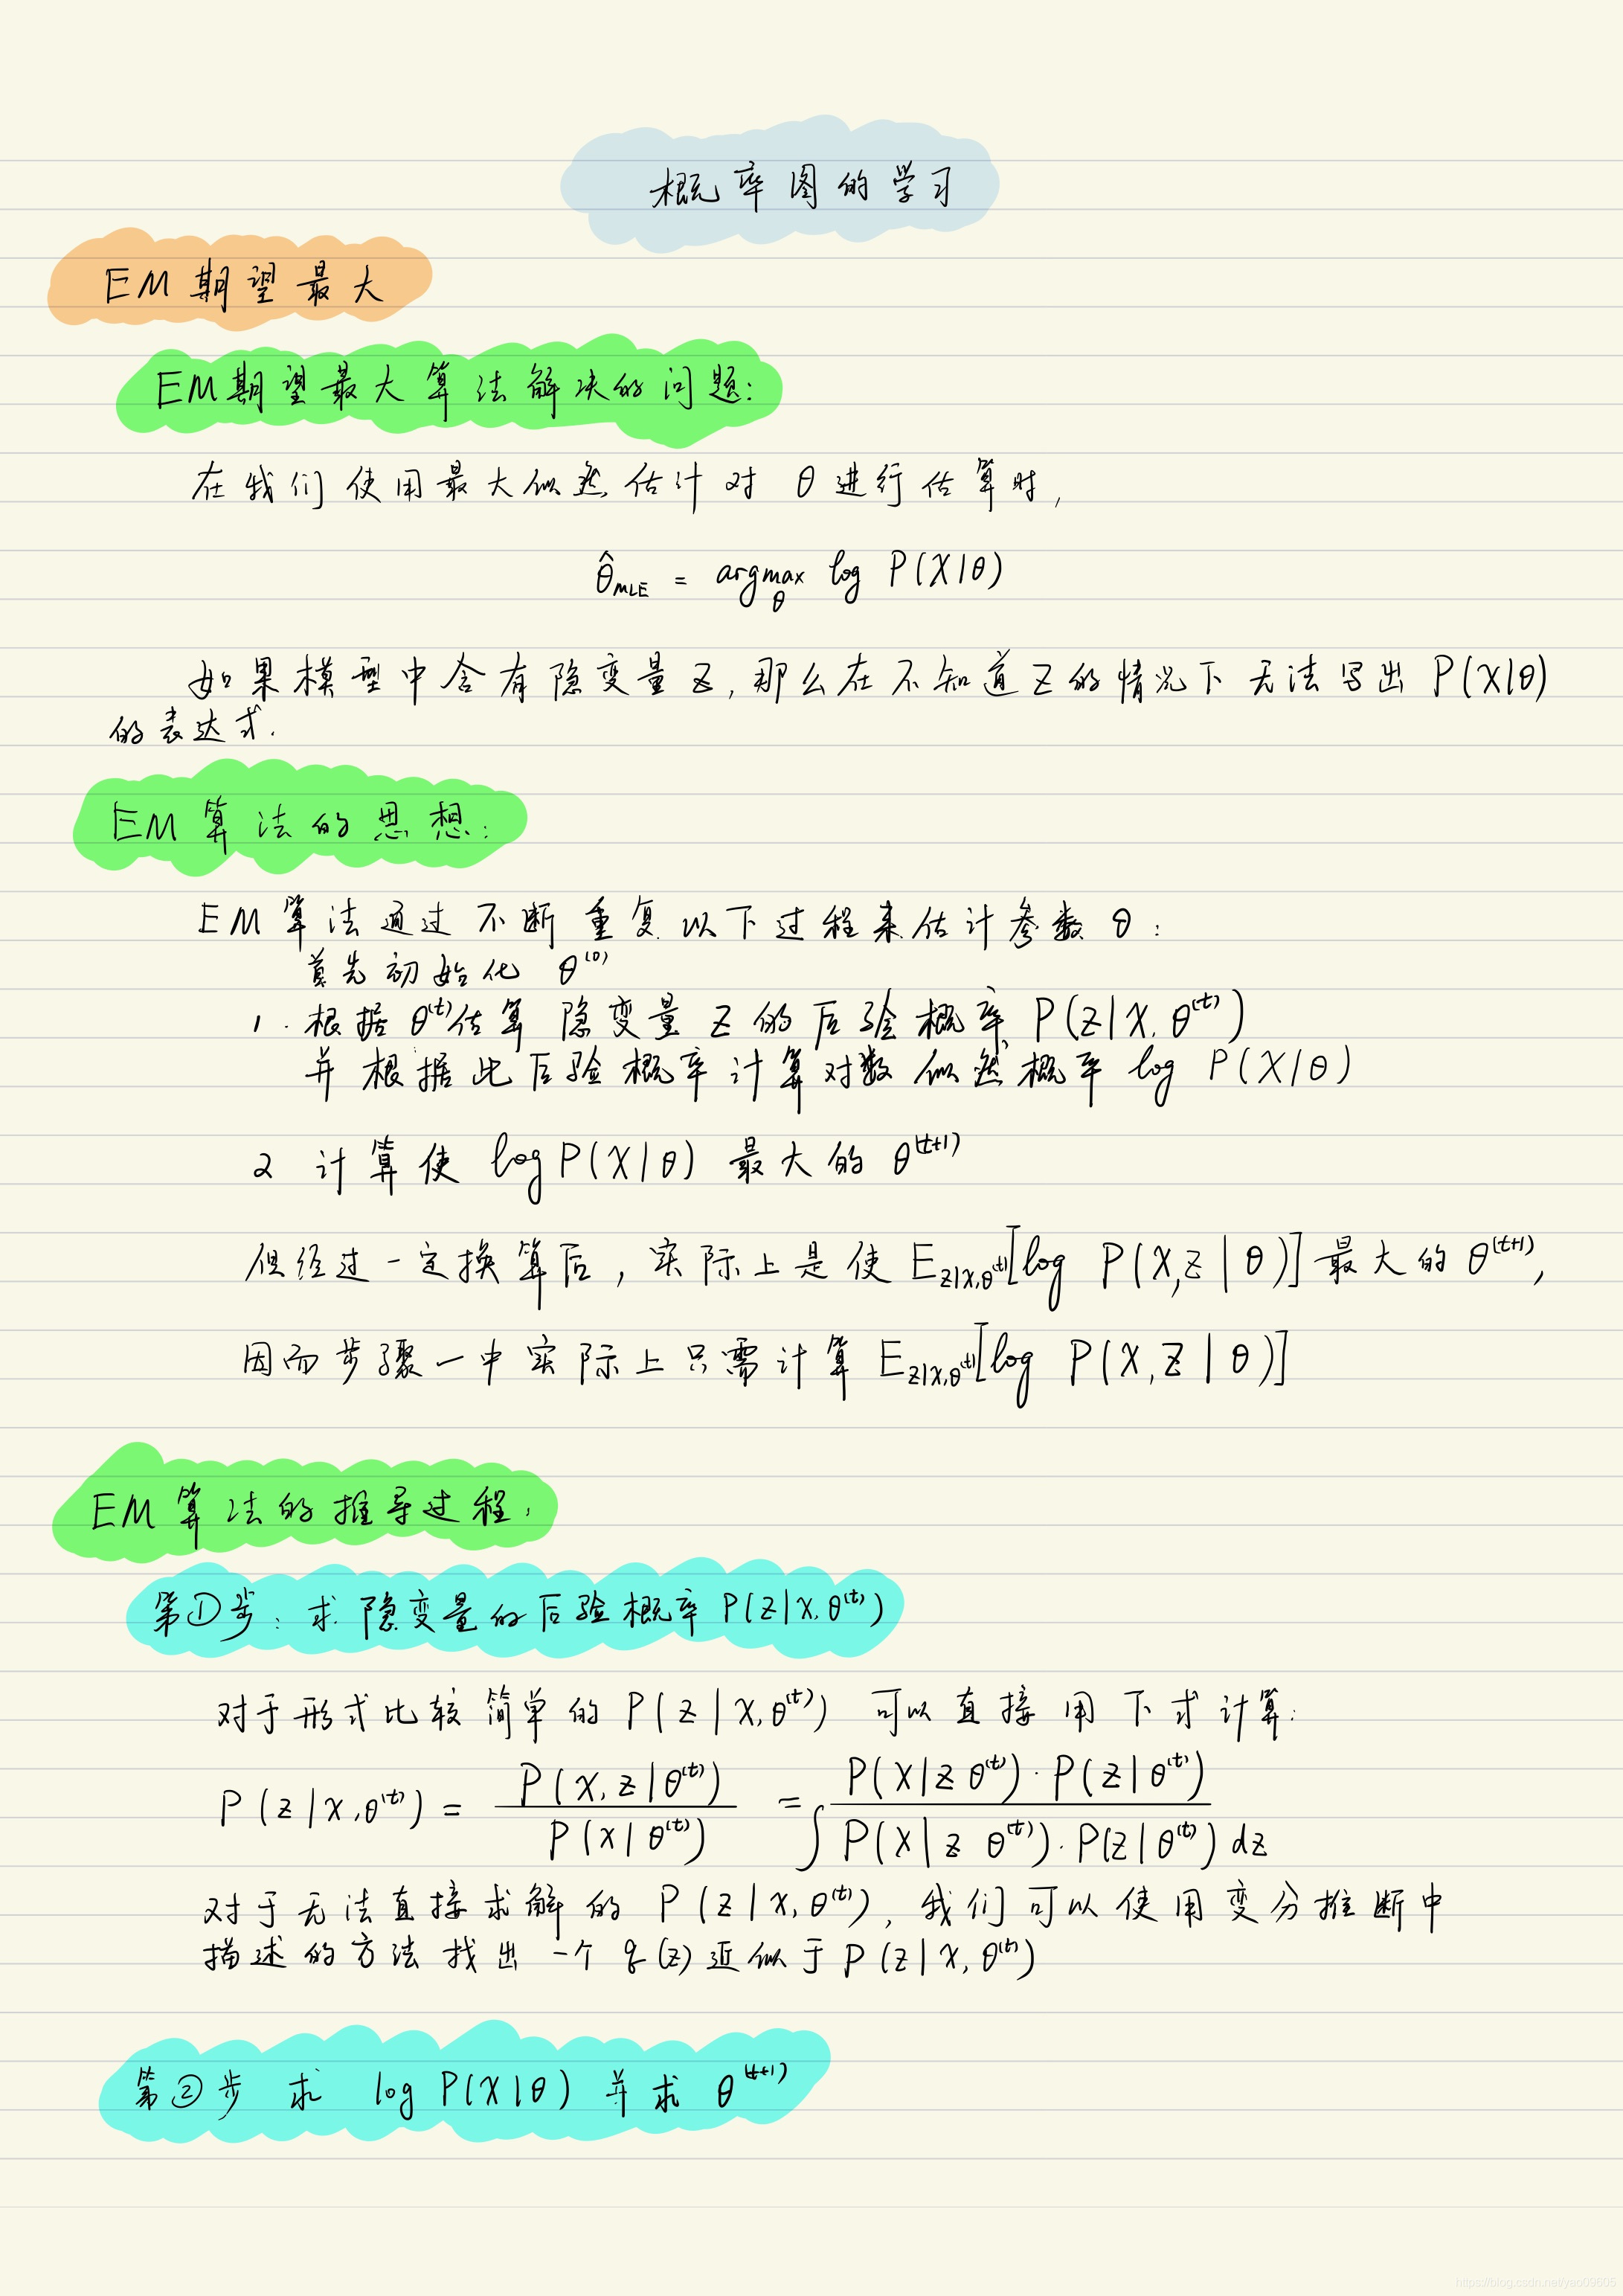 概率图的学习
EM 期望最大
EM期望最大算法解决的问题:
在我们使用最大似然估计对 θ 进行估算时,
θ̂_MLE = argmax_θ log P(X|θ)
如果模型中含有隐变量 Z, 那么在不知道 Z 的情况下无法写出 P(X|θ)
的表达式.
EM 算法的思想:
EM 算法通过不断重复以下过程来估计参数 θ:
首先初始化 θ^(0)
1. 根据 θ^(t) 估算 隐变量 Z 的后验概率 P(Z|X, θ^(t))
并根据此后验概率计算对数似然概率 log P(X|θ)
2 计算使 log P(X|θ) 最大的 θ^(t+1)
但经过一定换算后, 实际上是使 E_{Z|X,θ^(t)}[log P(X,Z|θ)] 最大的 θ^(t+1),
因而步骤一中实际上只需计算 E_{Z|X,θ^(t)}[log P(X,Z|θ)]
EM 算法的推导过程:
第①步: 求隐变量的后验概率 P(Z|X, θ^(t))
对于形式比较简单的 P(Z|X,θ^(t)) 可以直接用下式计算:
P(Z|X,θ^(t)) = P(X,Z|θ^(t)) / P(X|θ^(t)) = P(X|Z θ^(t))·P(Z|θ^(t)) / ∫P(X|Z θ^(t))·P(Z|θ^(t)) dz
对于无法直接求解的 P(Z|X,θ^(t)), 我们可以使用变分推断中
描述的方法找出一个 q(z) 近似于 P(Z|X,θ^(t))
第②步 求 log P(X|θ) 并求 θ^(t+1)
https://blog.csdn.net/yeo09605